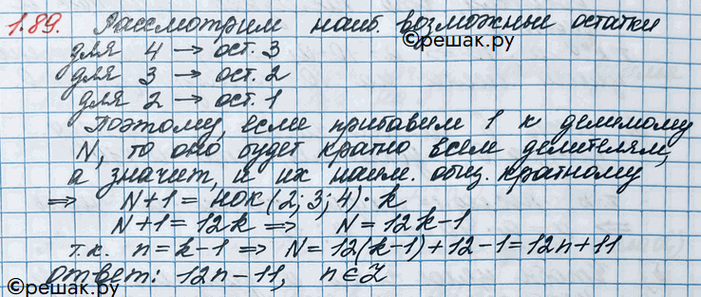 1.89. Рассмотрим наиб. возможные остатки
©решак.ру
для 4 → ост. 3
для 3 → ост. 2
для 2 → ост. 1
Поэтому, если прибавим 1 к делимому
N, то оно будет кратно всем делителям,
а значит, и их наим. общ. кратному
⇒ N+1 = НОК(2; 3; 4) · k
N+1 = 12k ⇒ N = 12k-1
т.к. n = k-1 ⇒ N = 12(k-1)+12-1 = 12n+11
Ответ: 12n-11, n∈Z
©решак.ру